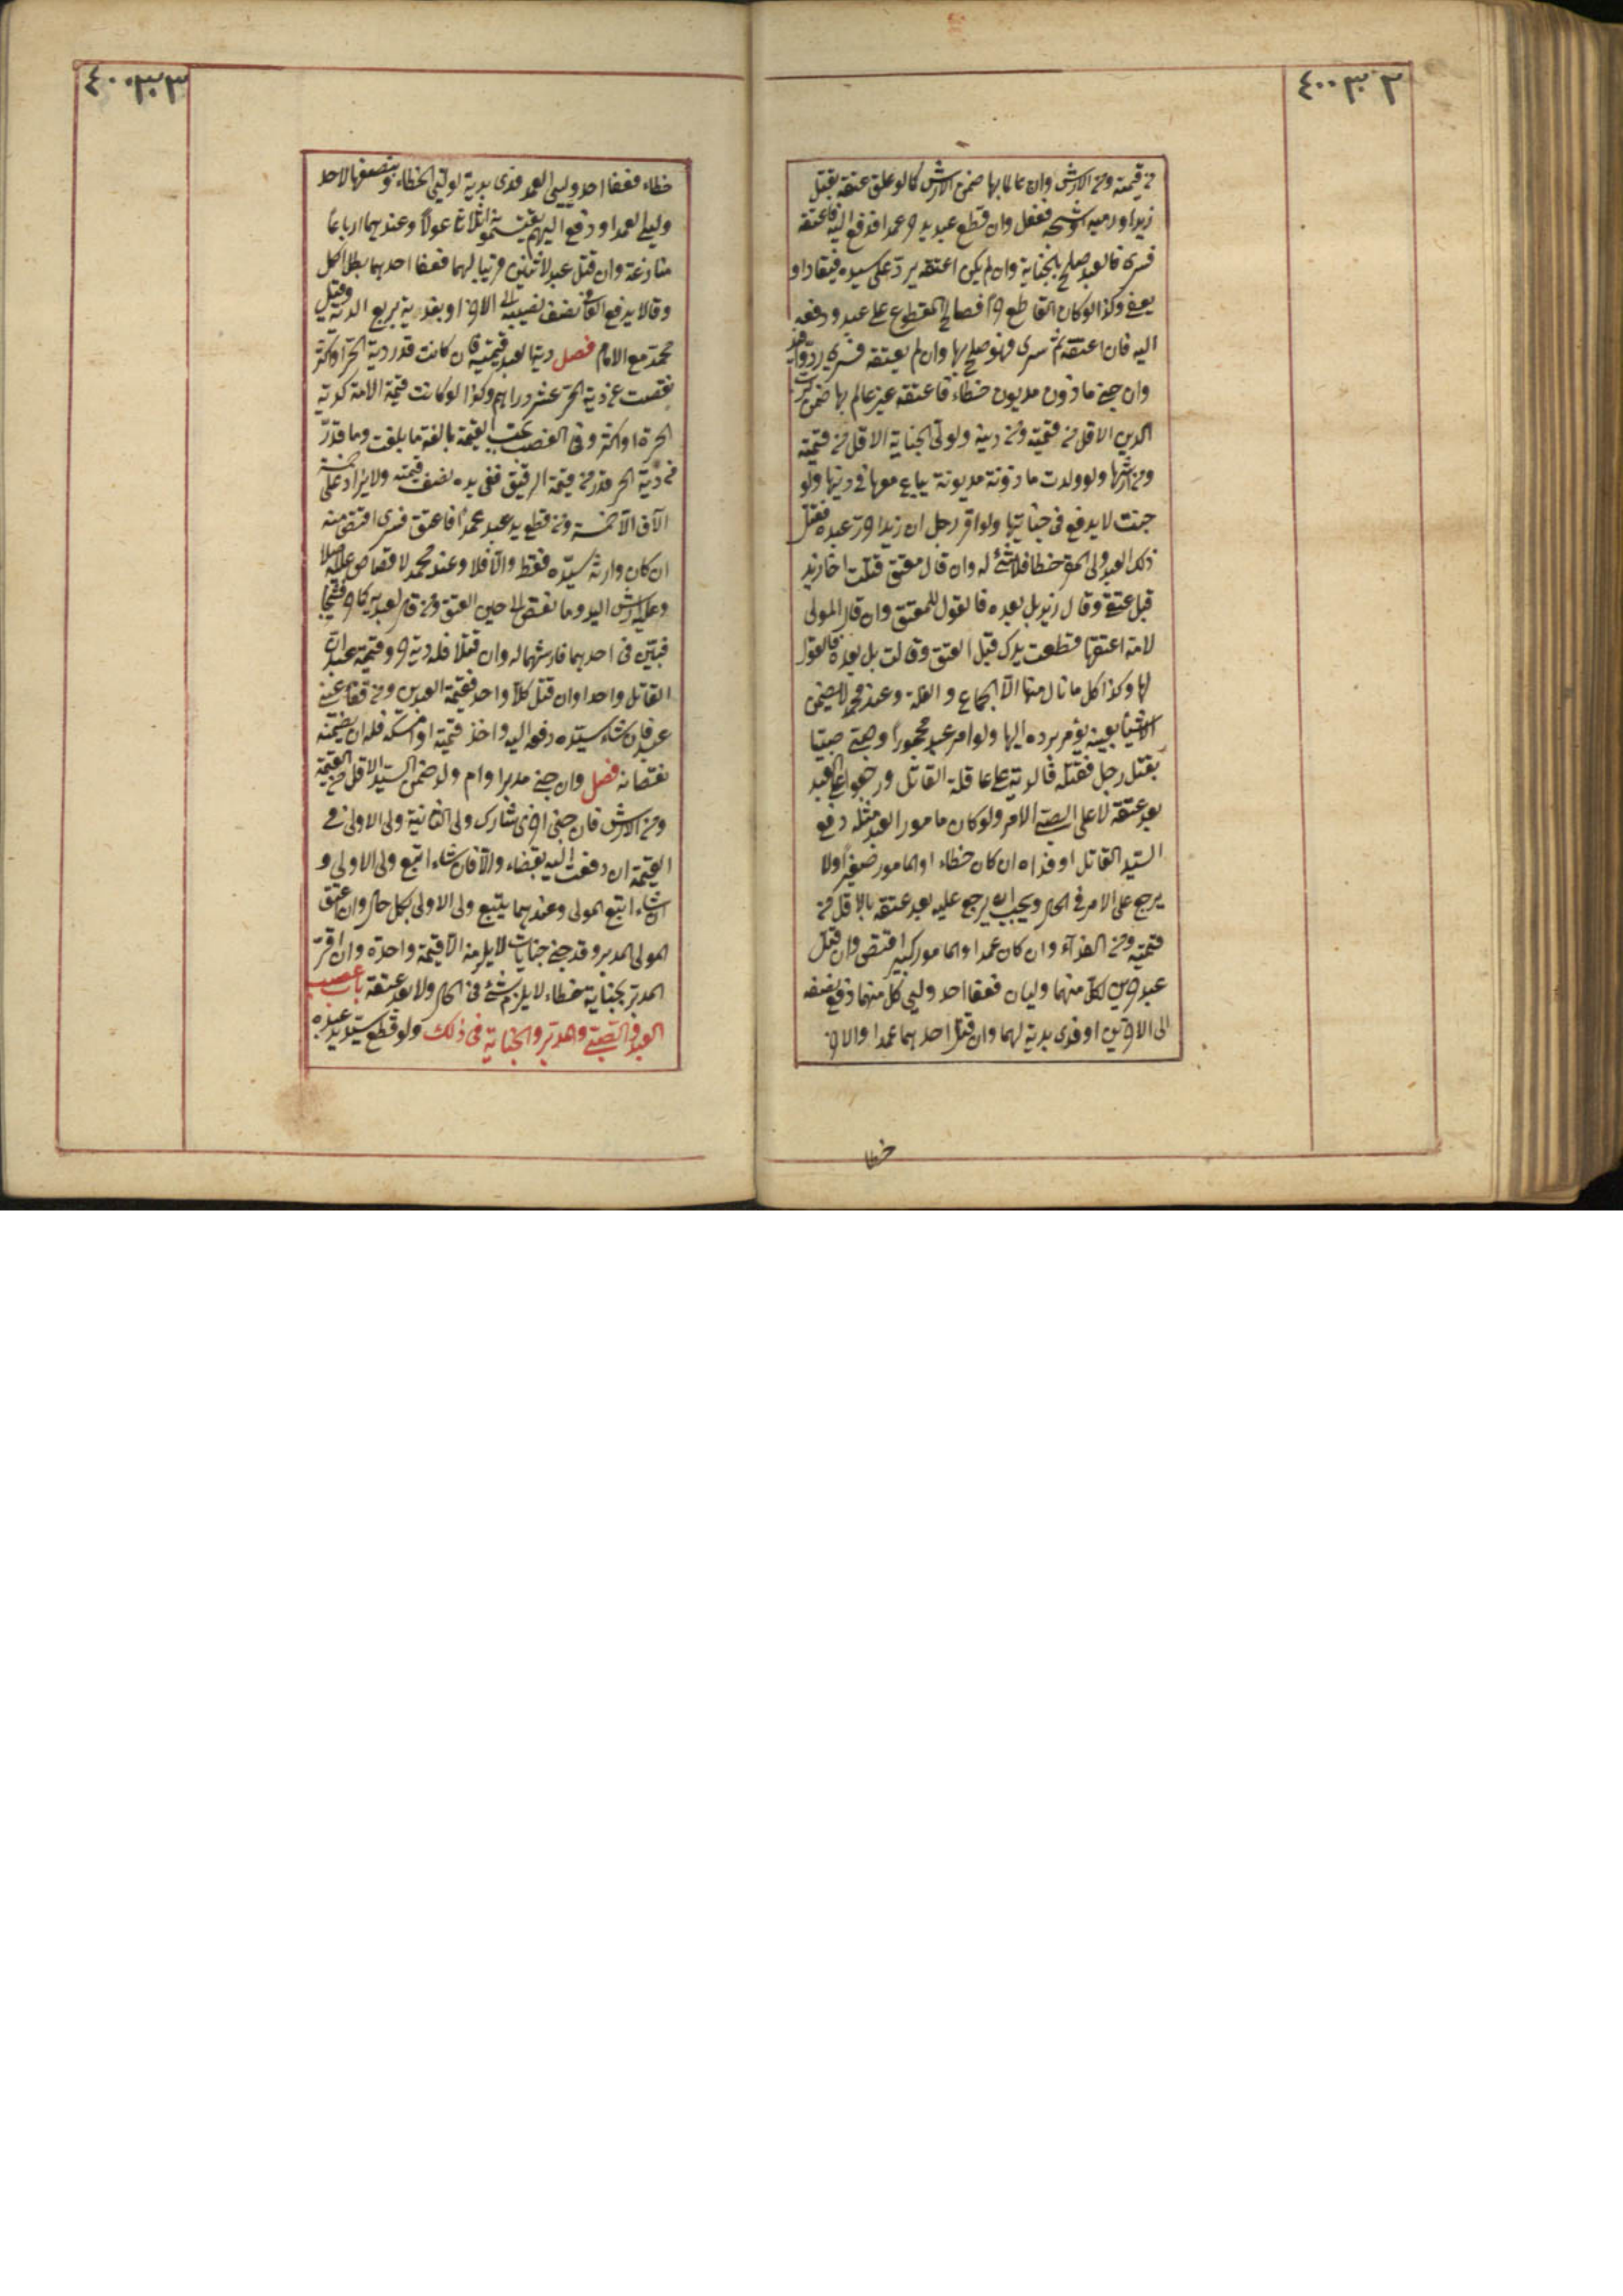 ٣ ٣٠ ٤٠٠
من قيمته ومن الارش وان عالما بها ضمن الارش كما لو علق عتقه بقتل
زيد او رميه او شجه ففعل وان قطع عبد يد حر عمدا فدفع اليه فاعتقه
فسرى فالعبد صلح بالجناية وان لم يكن اعتقه يرد على سيده فيقاد او
يعفى وكذا لو كان القاطع حرا فصالح المقطوع على عبد ودفعه
اليه فان اعتقه ثم سرى فهو صلح بها وان لم يعتقه فسرى رد واقيد
وان جنى ماذون مديون خطاء فاعتقه غير عالم بها ضمن لرب
الدين الاقل من قيمته ومن دينه ولولى الجناية الاقل من قيمته
ومن ارشها ولو ولدت ماذونة مديونة يباع معها في دينها ولو
جنت لا يدفع في جنايتها ولو اقر رجل ان زيدا حرر عبده فقتل
ذلك العبد ولى المقر خطا فلا شئ له وان قال معتق قتلت اخا زيد
قبل عتقى وقال زيد بل بعده فالقول للمعتق وان قال المولى
لامة اعتقها قطعت يدك قبل العتق وقالت بل بعده فالقول
لها وكذا كل ما نال منها الا الجماع والغلة وعند محمد لا يضمن
الا شيئا بعينه يؤمر برده اليها ولو امر عبد محجور او صبى صبيا
بقتل رجل فقتله فالدية على عاقلة القاتل ورجعوا على العبد
بعد عتقه لا على الصبى الآمر ولو كان مامور العبد مثله دفع
السيد القاتل او فداه ان كان خطاء او المامور صغيرا ولا
يرجع على الآمر في الحال ويجب ان يرجع عليه بعد عتقه بالاقل من
قيمته ومن الفداء وان كان عمدا والمامور كبيرا اقتص وان قتل
عبد حرين لكل منهما وليان فعفا احد وليى كل منهما دفع نصفه
الى الاخرين او فدى بدية لهما وان قتل احدهما عمدا والاخر
خطا
٣ ٣٠ ٤٠٠
خطاء فعفا احد وليى العمد فدى بدية لوليى الخطاء وبنصفها لاحد
وليى العمد او دفع اليهم يقتسمونه اثلاثا عولا وعندهما ارباعا
منازعة وان قتل عبد لاثنين قريبا لهما فعفا احدهما بطل الكل
وقالا يدفع العافى نصف نصيبه الى الاخر او يفديه بربع الدية وقيل
محمد مع الامام فصل دية العبد قيمته فان كانت قدر دية الحر او اكثر
نقصت عن دية الحر عشرة دراهم وكذا لو كانت قيمة الامة كدية
الحرة او اكثر وفي الغصب تجب القيمة بالغة ما بلغت وما قدر
من دية الحر قدر من قيمة الرقيق ففى يده نصف قيمته ولا يزاد على خمسة
الآف الا خمسة ومن قطع يد عبد عمدا فاعتق فسرى اقتص منه
ان كان وارثه سيده فقط والا فلا وعند محمد لا قصاص اصلا
وعليه ارش اليد وما نقص الى حين العتق ومن قال لعبديه احدكما حر فشجا
فبين في احدهما فارشهما له وان قتلا فله دية حر وقيمة عبد ان
القاتل واحدا وان قتل كلا واحد فقيمة العبدين ومن فقأ عينى
عبد فان شاء سيده دفعه اليه واخذ قيمته او امسكه فله ان يضمنه
نقصانه فصل وان جنى مدبر او ام ولد ضمن السيد الاقل من القيمة
ومن الارش فان جنى اخرى شارك ولى الثانية ولى الاولى في
القيمة ان دفعت اليه بقضاء والا فان شاء اتبع ولى الاولى و
ان شاء اتبع المولى وعندهما يتبع ولى الاولى بكل حال وان اعتق
المولى المدبر وقد جنى جنايات لا يلزمه الا قيمة واحدة وان اقر
المدبر بجناية خطاء لا يلزم شئ في الحال ولا بعد عتقه باب غصب
العبد والصبى والمدبر والجناية في ذلك ولو قطع سيد يد عبده